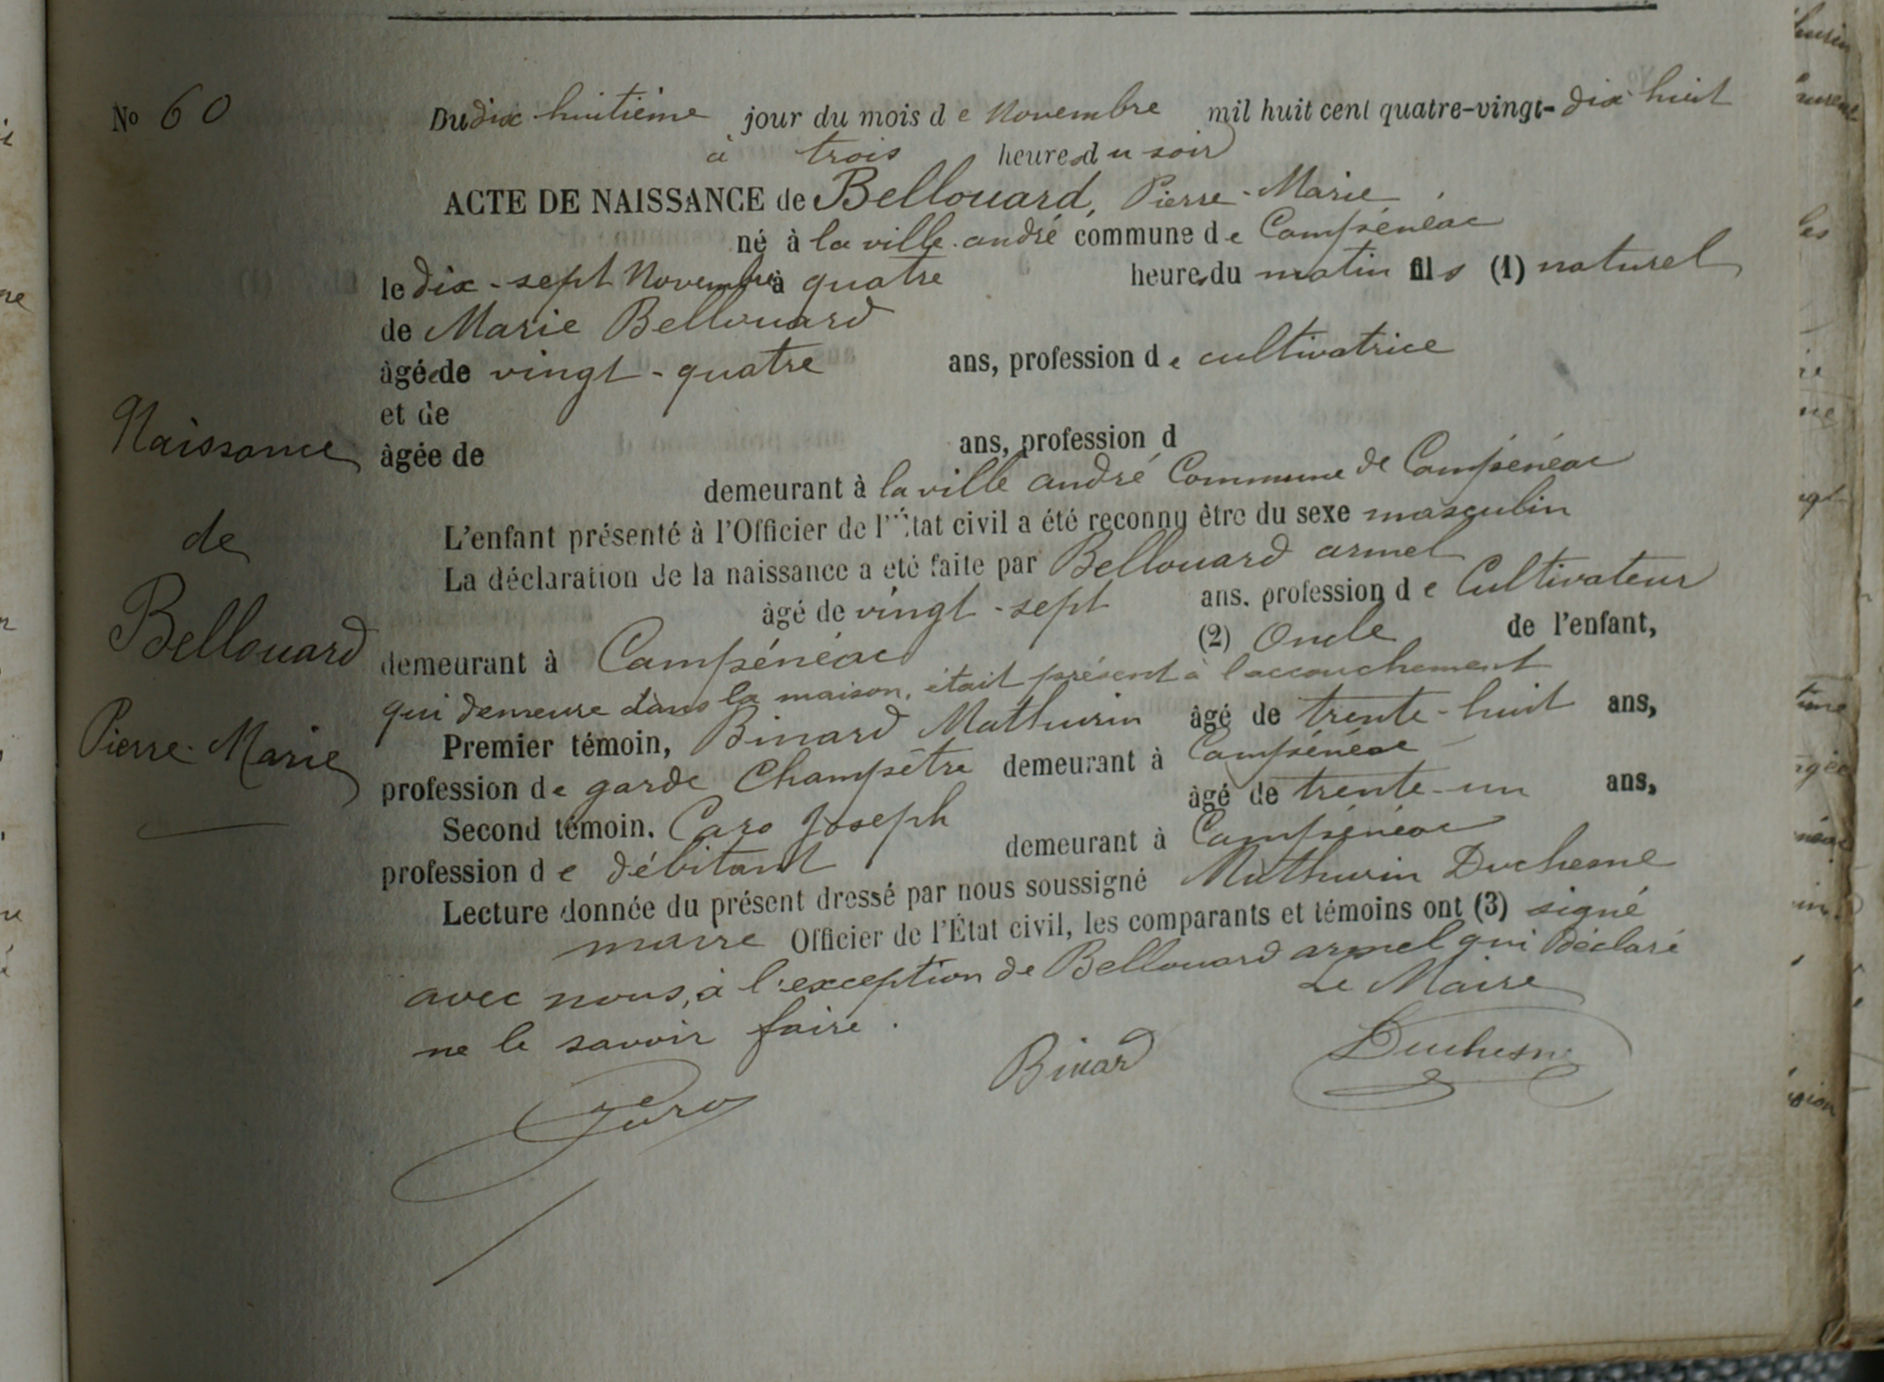 No 60
Du dix-huitième jour du mois de Novembre mil huit cent quatre-vingt-dix huit
à trois heures du soir
ACTE DE NAISSANCE de Bellouard, Pierre-Marie
né à la ville andré commune de Campénéac
le dix-sept Novembre à quatre heures du matin fils (1) naturel
de Marie Bellouard
âgée de vingt-quatre ans, profession de cultivatrice
et de
âgée de ans, profession d
demeurant à la ville andré Commune de Campénéac
L'enfant présenté à l'Officier de l'État civil a été reconnu être du sexe masculin
La déclaration de la naissance a été faite par Bellouard armel
âgé de vingt-sept ans, profession de Cultivateur
demeurant à Campénéac (2) Oncle de l'enfant,
qui demeure dans la maison, était présent à l'accouchement
Premier témoin, Binard Mathurin âgé de trente-huit ans,
profession de garde Champêtre demeurant à Campénéac
Second témoin. Caro Joseph âgé de trente-un ans,
profession de débitant demeurant à Campénéac
Lecture donnée du présent dressé par nous soussigné Mathurin Duchesne
maire Officier de l'État civil, les comparants et témoins ont (3) signé
avec nous, à l'exception de Bellouard armel qui déclaré
ne le savoir faire.
Le Maire
Caro Binard Duchesne
Naissance
de
Bellouard
Pierre-Marie